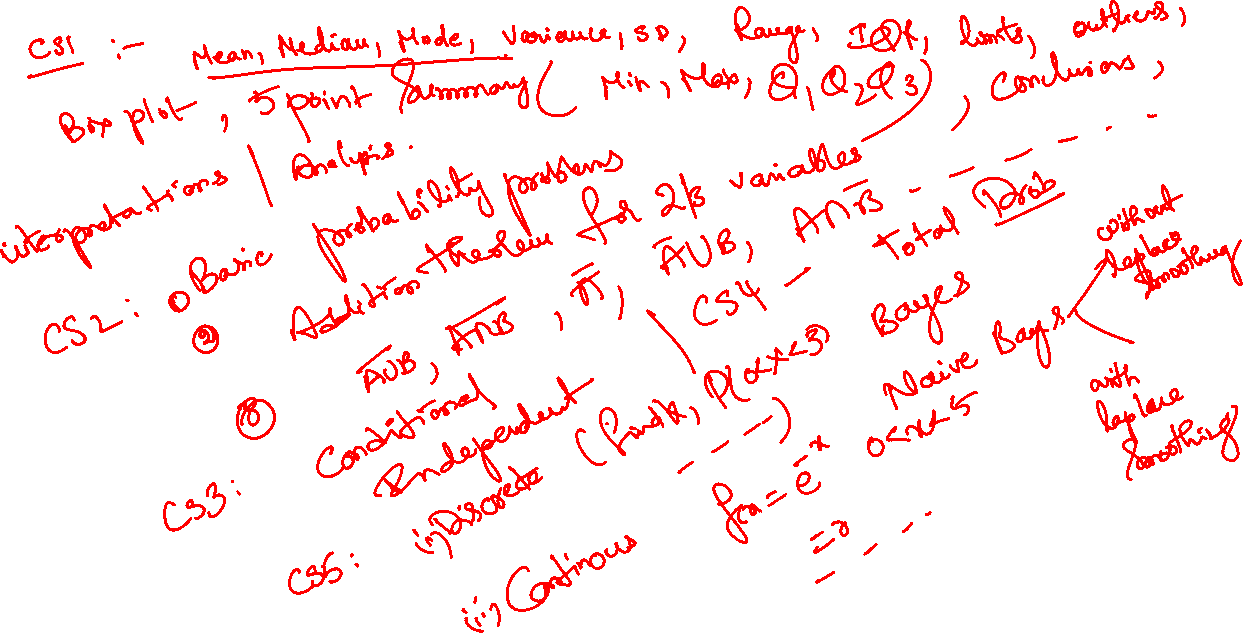 CS1 :- Mean, Median, Mode, Variance, SD, Range, IQR, limits, outliers,
Box plot, 5 point Summary ( Min, Max, Q1 Q2 Q3 ), Conclusions,
interpretations / Analysis.
CS2: ① Basic probability problems
② Addition Theorem for 2/3 variables
③ A̅U̅B̅, A̅∩̅B̅, A̅, A̅UB, A∩B̅ - - - - - -
CS3: Conditional
Independent
CS4 - Total Prob
Bayes
Naive Bayes
without laplace Smoothing
with laplace Smoothing
CS5: (i) Discrete (find k, P(0<x<3)
- - - - )
(ii) Continous f(x) = e^-x 0<x<5
- - - -